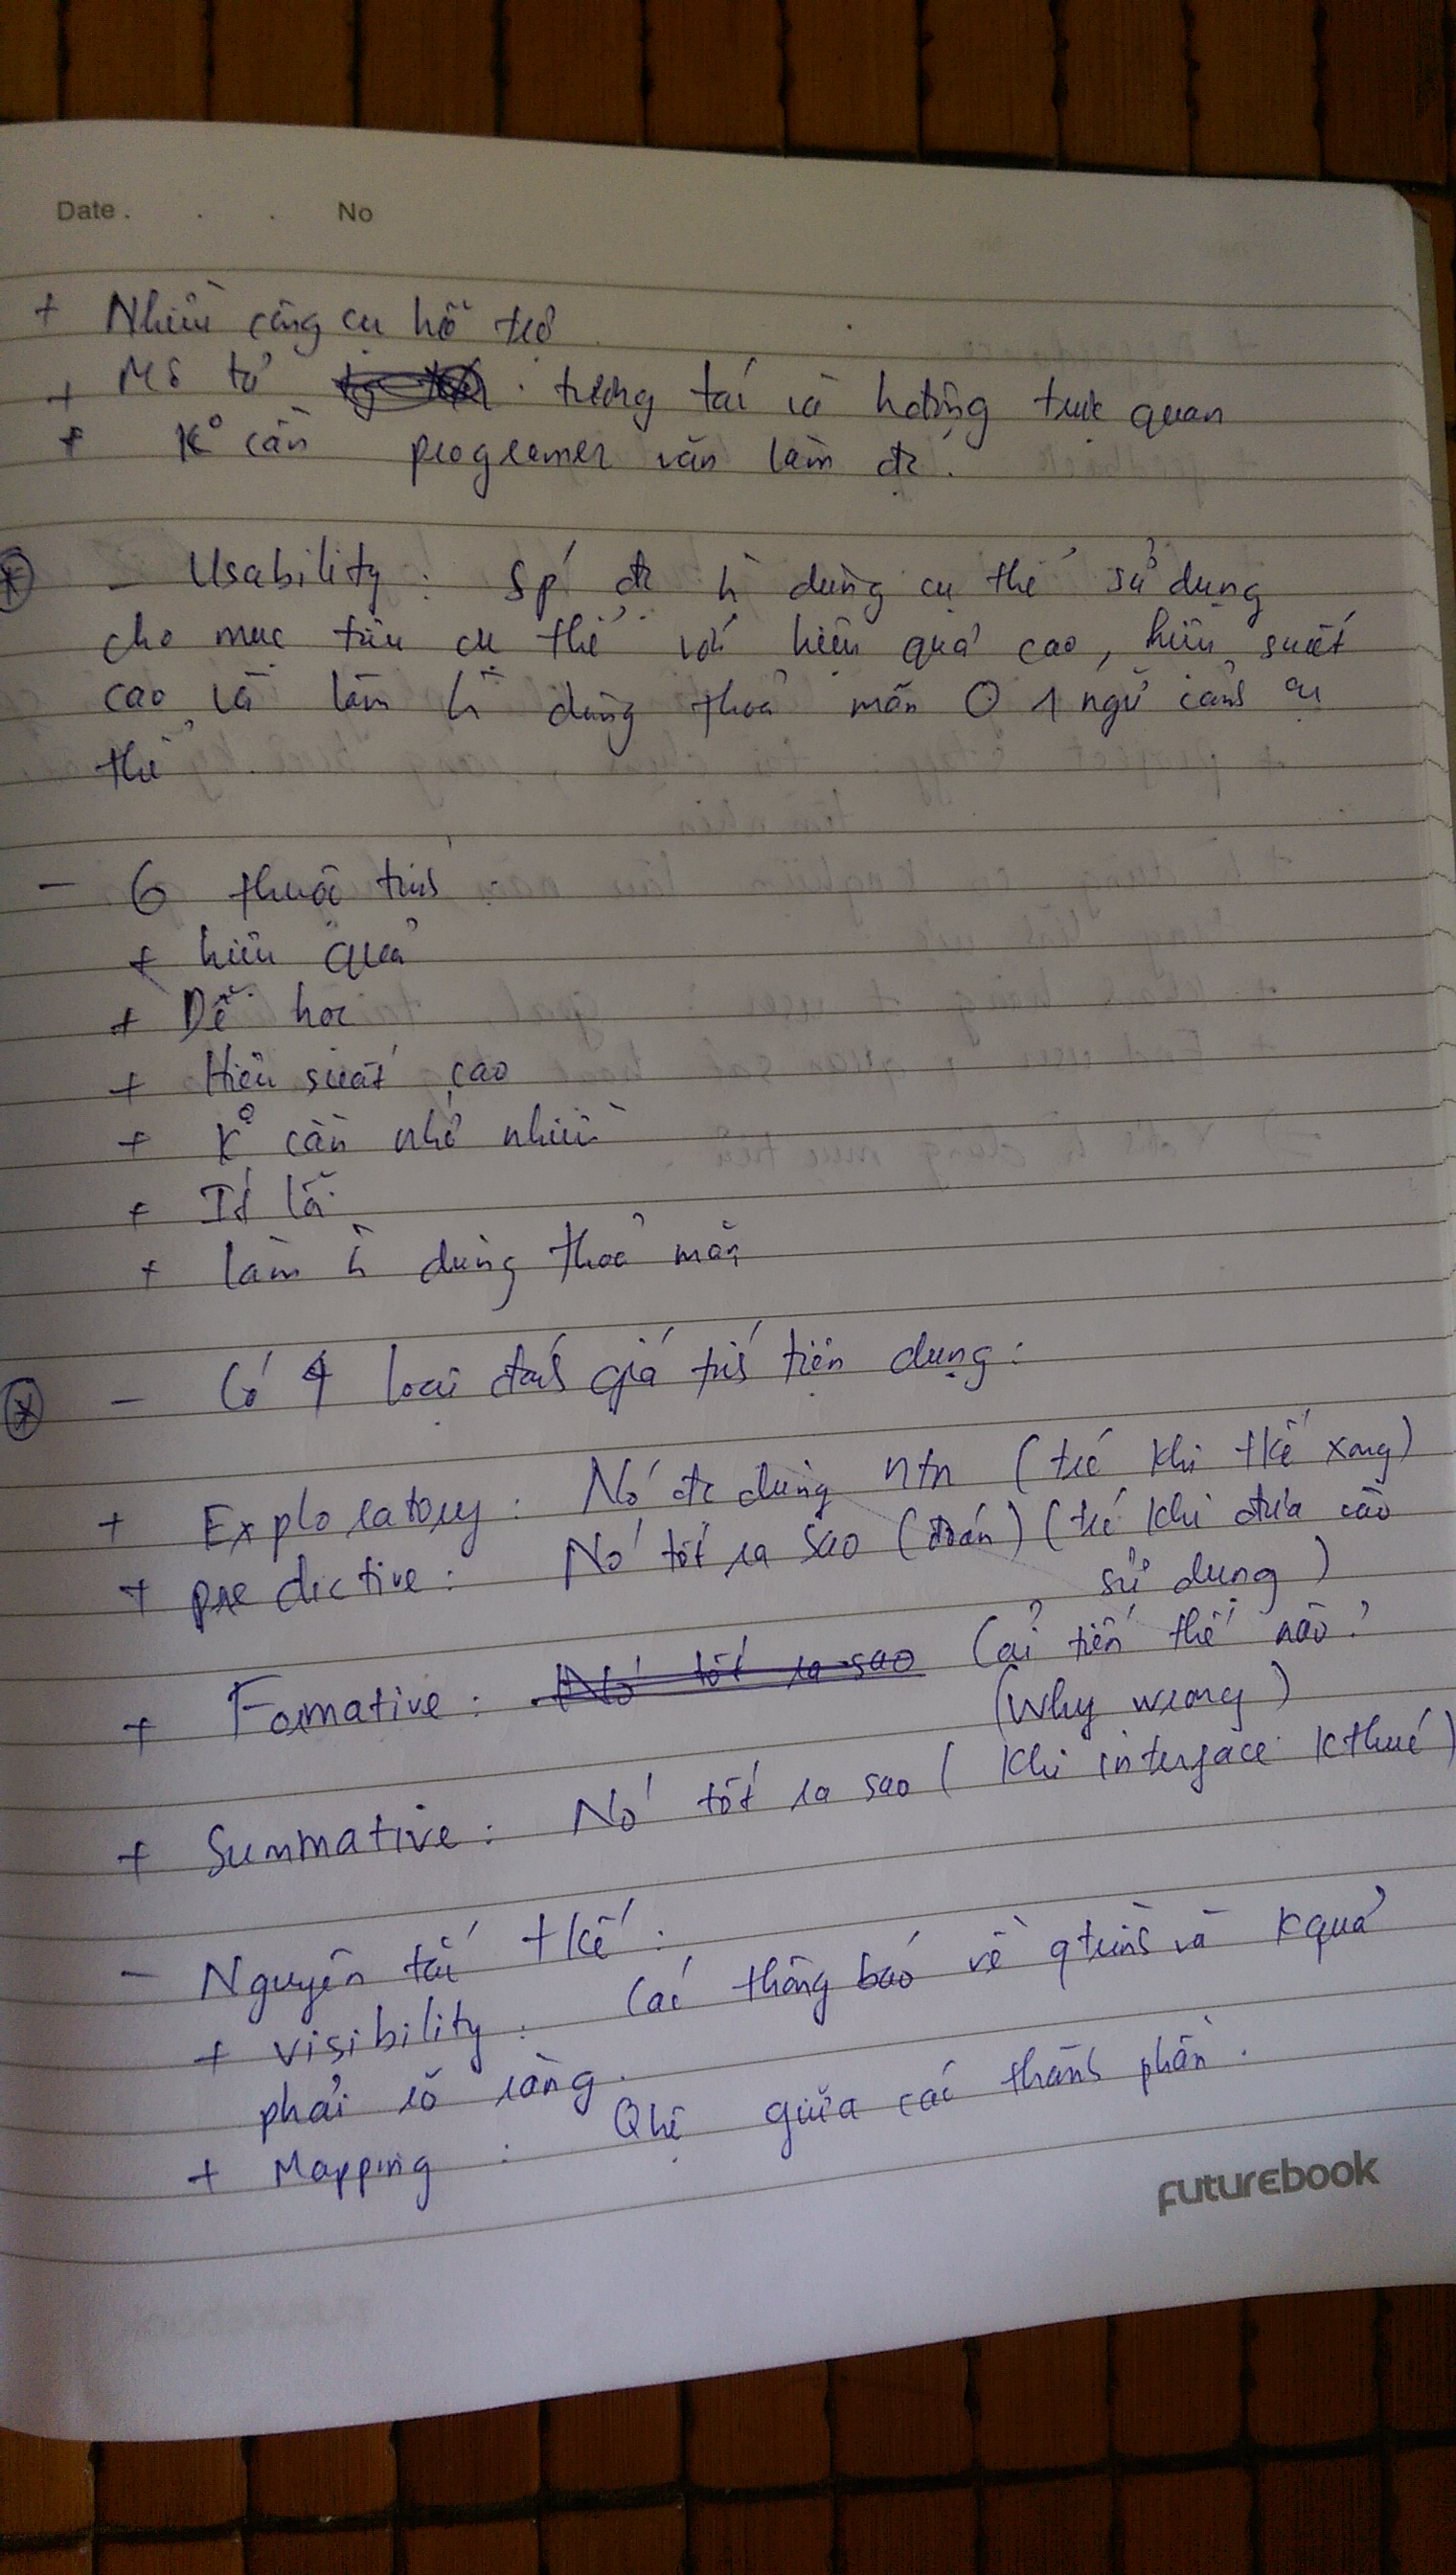 Date . . . No
+ Nhiều công cụ hỗ trợ
+ Mô tả tương tác và hđộng trực quan
+ K° cần programer vẫn làm đc.
* - Usability : Sp' đc h` dùng cụ thể sử dụng
cho mục tiêu cụ thể với hiệu quả cao, hiệu suất
cao và làm h` dùng thoả mãn 1 ngữ cảnh cụ
thể
- 6 thuộc tính
+ hiệu quả
+ Dễ học
+ Hiệu suất cao
+ K° cần nhớ nhiều
+ Ít lỗi
+ làm h` dùng thoả mãn
* - Có 4 loại đánh giá tính tiện dụng :
+ Exploratory : Nó đc dùng ntn (trc' khi tkế xong)
+ predictive : Nó tốt ra sao (đoán) (trc' khi đưa vào
sử dụng )
+ Formative : Nó tốt ra sao Cải tiến thế nào ?
(Why wrong )
+ Summative : Nó tốt ra sao ( khi interface kthúc )
- Nguyên tắc tkế :
+ visibility : Các thông báo về qtrình và kquả
phải rõ ràng.
+ Mapping : Qhệ giữa các thành phần .
futurebook